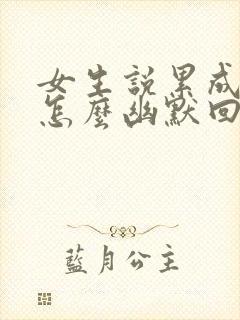 女生說累成
怎麼幽默回
藍月公主